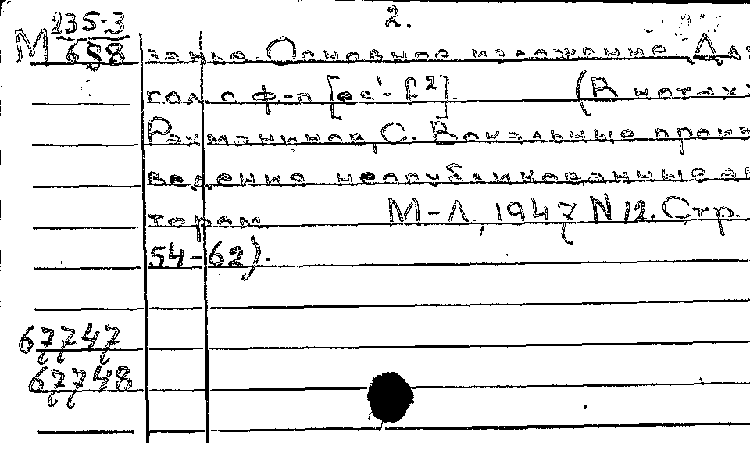 2.
М 235-3
658
занье. Основное изложение. Для
гол. с ф-п [es'-f²] (В нотах:
Рахманинов, С. Вокальные произ
ведения неопубликованные ав
тором М-Л, 1947 N 12. Стр.
54-62).
67747
67748